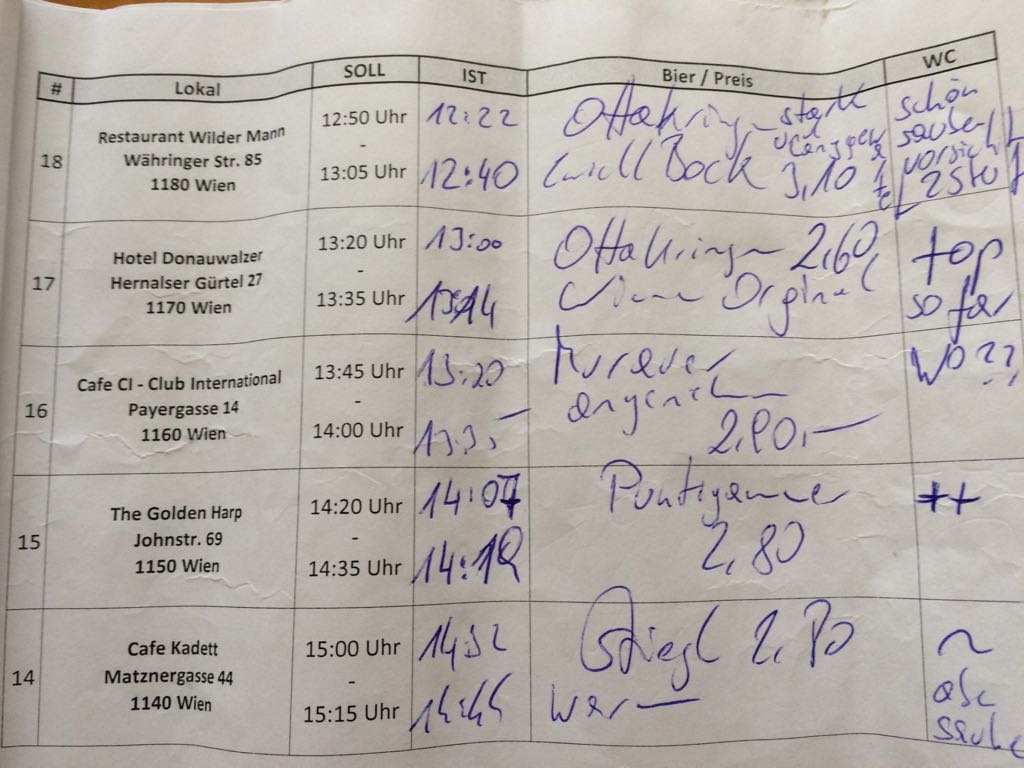 # Lokal SOLL IST Bier / Preis WC
18
Restaurant Wilder Mann
Währinger Str. 85
1180 Wien
12:50 Uhr
-
13:05 Uhr
12:22
12:40
Ottakringer stark
Zwickl Bock 3,10
schön
sauber!!
vorsicht
17
Hotel Donauwalzer
Hernalser Gürtel 27
1170 Wien
13:20 Uhr
-
13:35 Uhr
13:00
13:14
Ottakringer 2,60
Wiener Orginal
top
so far
16
Cafe CI - Club International
Payergasse 14
1160 Wien
13:45 Uhr
-
14:00 Uhr
13:20
Murauer
2,90,-
WO??
15
The Golden Harp
Johnstr. 69
1150 Wien
14:20 Uhr
-
14:35 Uhr
14:07
Puntigamer
2,80
++
14
Cafe Kadett
Matznergasse 44
1140 Wien
15:00 Uhr
-
15:15 Uhr
14:32
14:45
Stiegl 2,90
warm
~